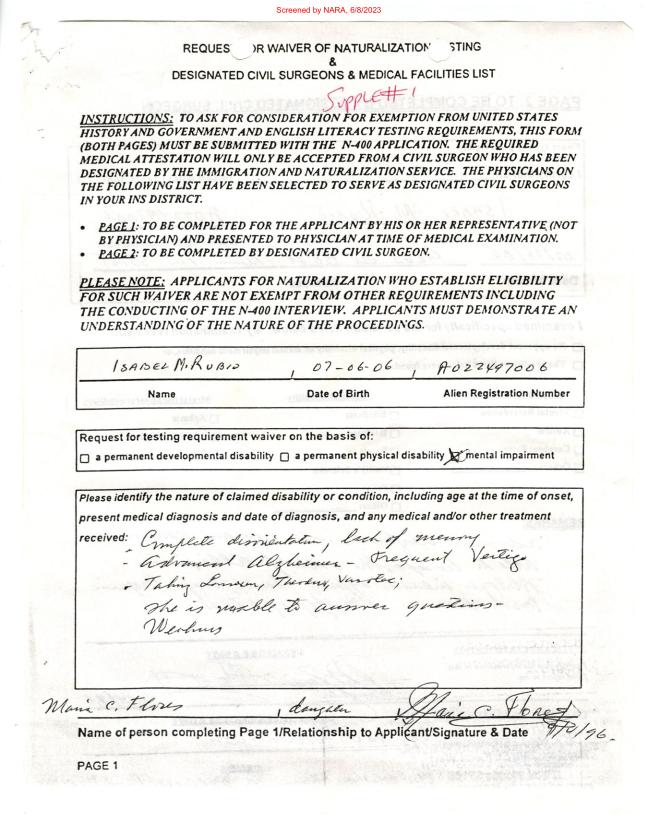 Screened by NARA, 6/8/2023
REQUES OR WAIVER OF NATURALIZATION STING
&
DESIGNATED CIVIL SURGEONS & MEDICAL FACILITIES LIST
Supple #1
INSTRUCTIONS: TO ASK FOR CONSIDERATION FOR EXEMPTION FROM UNITED STATES
HISTORY AND GOVERNMENT AND ENGLISH LITERACY TESTING REQUIREMENTS, THIS FORM
(BOTH PAGES) MUST BE SUBMITTED WITH THE N-400 APPLICATION. THE REQUIRED
MEDICAL ATTESTATION WILL ONLY BE ACCEPTED FROM A CIVIL SURGEON WHO HAS BEEN
DESIGNATED BY THE IMMIGRATION AND NATURALIZATION SERVICE. THE PHYSICIANS ON
THE FOLLOWING LIST HAVE BEEN SELECTED TO SERVE AS DESIGNATED CIVIL SURGEONS
IN YOUR INS DISTRICT.
• PAGE 1: TO BE COMPLETED FOR THE APPLICANT BY HIS OR HER REPRESENTATIVE (NOT
BY PHYSICIAN) AND PRESENTED TO PHYSICIAN AT TIME OF MEDICAL EXAMINATION.
• PAGE 2: TO BE COMPLETED BY DESIGNATED CIVIL SURGEON.
PLEASE NOTE: APPLICANTS FOR NATURALIZATION WHO ESTABLISH ELIGIBILITY
FOR SUCH WAIVER ARE NOT EXEMPT FROM OTHER REQUIREMENTS INCLUDING
THE CONDUCTING OF THE N-400 INTERVIEW. APPLICANTS MUST DEMONSTRATE AN
UNDERSTANDING OF THE NATURE OF THE PROCEEDINGS.
ISABEL M. RUBIO , 07-06-06 , A022497006
Name Date of Birth Alien Registration Number
Request for testing requirement waiver on the basis of:
a permanent developmental disability a permanent physical disability mental impairment
Please identify the nature of claimed disability or condition, including age at the time of onset,
present medical diagnosis and date of diagnosis, and any medical and/or other treatment
received: Complete disorientation, lack of memory
- Advanced Alzheimer - Frequent Vertigo
- Taking
She is unable to answer questions -
Maria C. Flores , Maria C. Flores
Name of person completing Page 1/Relationship to Applicant/Signature & Date
PAGE 1